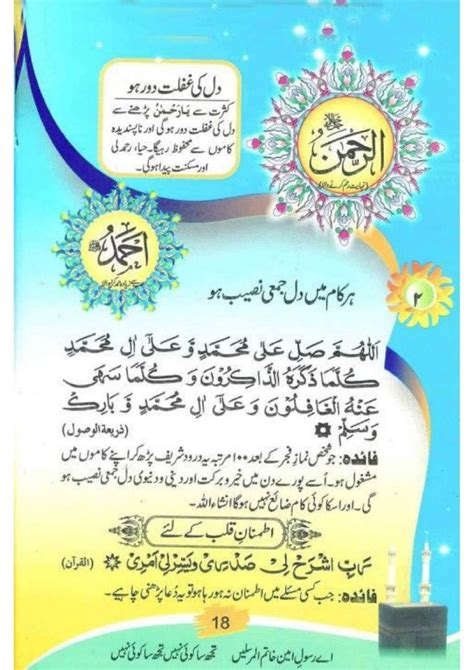 دل کی غفلت دور ہو
کثرت سے یَارَحْمٰنُ پڑھنے سے
دل کی غفلت دور ہوگی اور ناپسندیدہ
کاموں سے محفوظ رہیگا۔ حیا، رحمدلی
اور مسکنت پیدا ہوگی۔
اَلرَّحْمٰنُ
(نہایت رحم کرنے والا)
اَحْمَدُ
۲
ہر کام میں دل جمعی نصیب ہو
اَللّٰهُمَّ صَلِّ عَلٰی مُحَمَّدٍ وَّ عَلٰٓی اٰلِ مُحَمَّدٍ
کُلَّمَا ذَکَرَهُ الذَّاکِرُوْنَ وَ کُلَّمَا سَهٰی
عَنْهُ الْغَافِلُوْنَ وَ عَلٰٓی اٰلِ مُحَمَّدٍ وَ بَارِكْ
وَسَلِّمْ (ذریعۃ الوصول)
فائدہ: جو شخص نماز فجر کے بعد ۱۰۰ مرتبہ یہ درود شریف پڑھ کر اپنے کاموں میں
مشغول ہو۔ اُسے پورے دن میں خیر و برکت اور دینی و دنیوی دل جمعی نصیب ہو
گی۔ اور اسکا کوئی کام ضائع نہیں ہوگا انشاء اللہ۔
اطمنان قلب کے لئے
رَبِّ اشْرَحْ لِیْ صَدْرِیْ وَیَسِّرْ لِیْ اَمْرِیْ (القرآن)
فائدہ: جب کسی مسئلے میں اطمنان نہ ہو رہا ہو تو یہ دُعا پڑھنی چاہیے۔
18
اے رسولِ امین خاتم المرسلیں تجھ سا کوئی نہیں تجھ سا کوئی نہیں